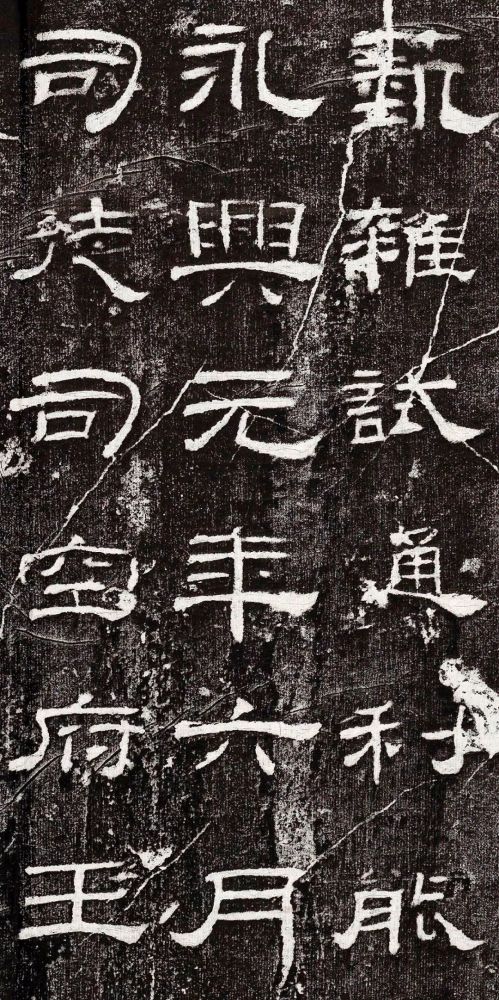 蓺雜試通利能
永興元年六月
司徒司空府壬